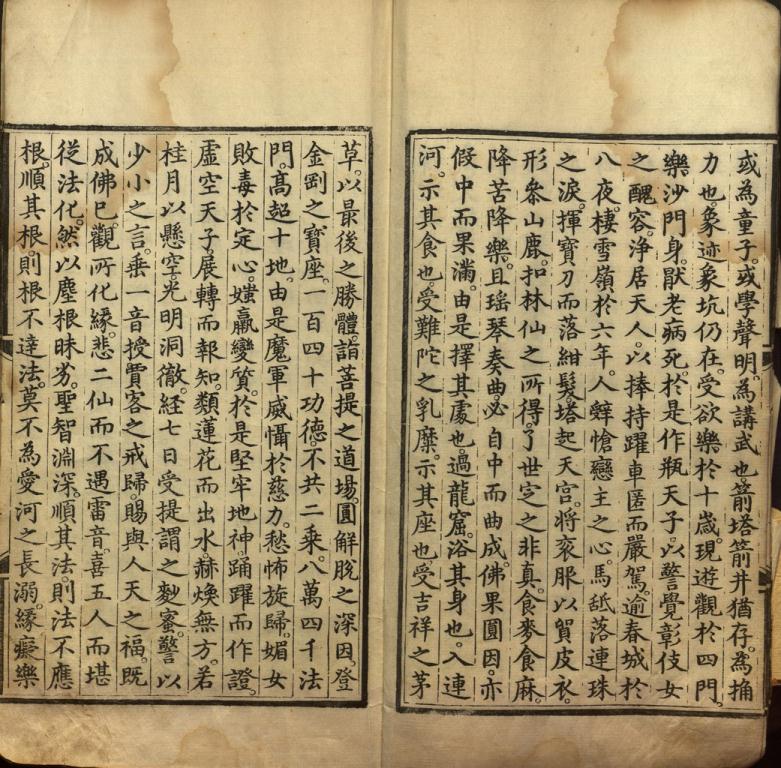 或為童子。或學聲明。為講武也。箭塔箭井猶存。為捅
力也。象迹象坑仍在。受欲樂於十歲。現遊觀於四門。
樂沙門身。猒老病死。於是作瓶天子。以警覺彰伎女
之醜容。淨居天人。以捧持躍車匿而嚴駕。逾春城於
八夜。棲雪嶺於六年。人辤愴戀主之心。馬舐落連珠
之淚。揮寶刃而落紺髮。塔起天宮。將衮服以貿皮衣。
形參山鹿。扣林仙之所得。了世定之非真。食麥食麻。
降苦降樂。且瑶琴奏曲。必自中而曲成。佛果圓因。亦
假中而果滿。由是擇其處也。過龍窟。浴其身也。入連
河。示其食也。受難陀之乳糜。示其座也。受吉祥之茅
草。以最後之勝體。詣菩提之道場。圓解脫之深因。登
金剛之寶座。一百四十功德。不共二乘。八萬四千法
門。高超十地。由是魔軍威懾於慈力。愁怖旋歸。媚女
敗毒於定心。媸羸變質。於是堅牢地神。踊躍而作證。
虛空天子展轉而報知。類蓮花而出水。赫煥無方。若
桂月以懸空。光明洞徹。経七日受提謂之麨蜜。警以
少小之言。乗一音授賈客之戒歸。賜與人天之福。既
成佛巳。觀所化緣。悲二仙而不遇雷音。喜五人而堪
從法化。然以塵根昧劣。聖智淵深。順其法。則法不應
根。順其根。則根不達法。莫不為愛河之長溺。緣癡樂